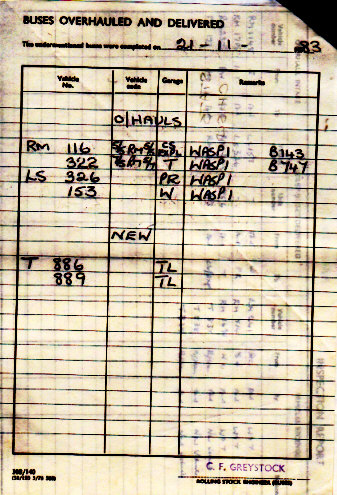 BUSES OVERHAULED AND DELIVERED
The undermentioned buses were completed on 21-11-83
Vehicle No. Vehicle code Garage Remarks
O/HAULS
RM 116 WASP1 B143
322 T WASP1 B747
LS 326 PR WASP1
153 W WASP1
NEW
T 886 TL
889 TL
C. F. GREYSTOCK
ROLLING STOCK ENGINEER (BUSES)